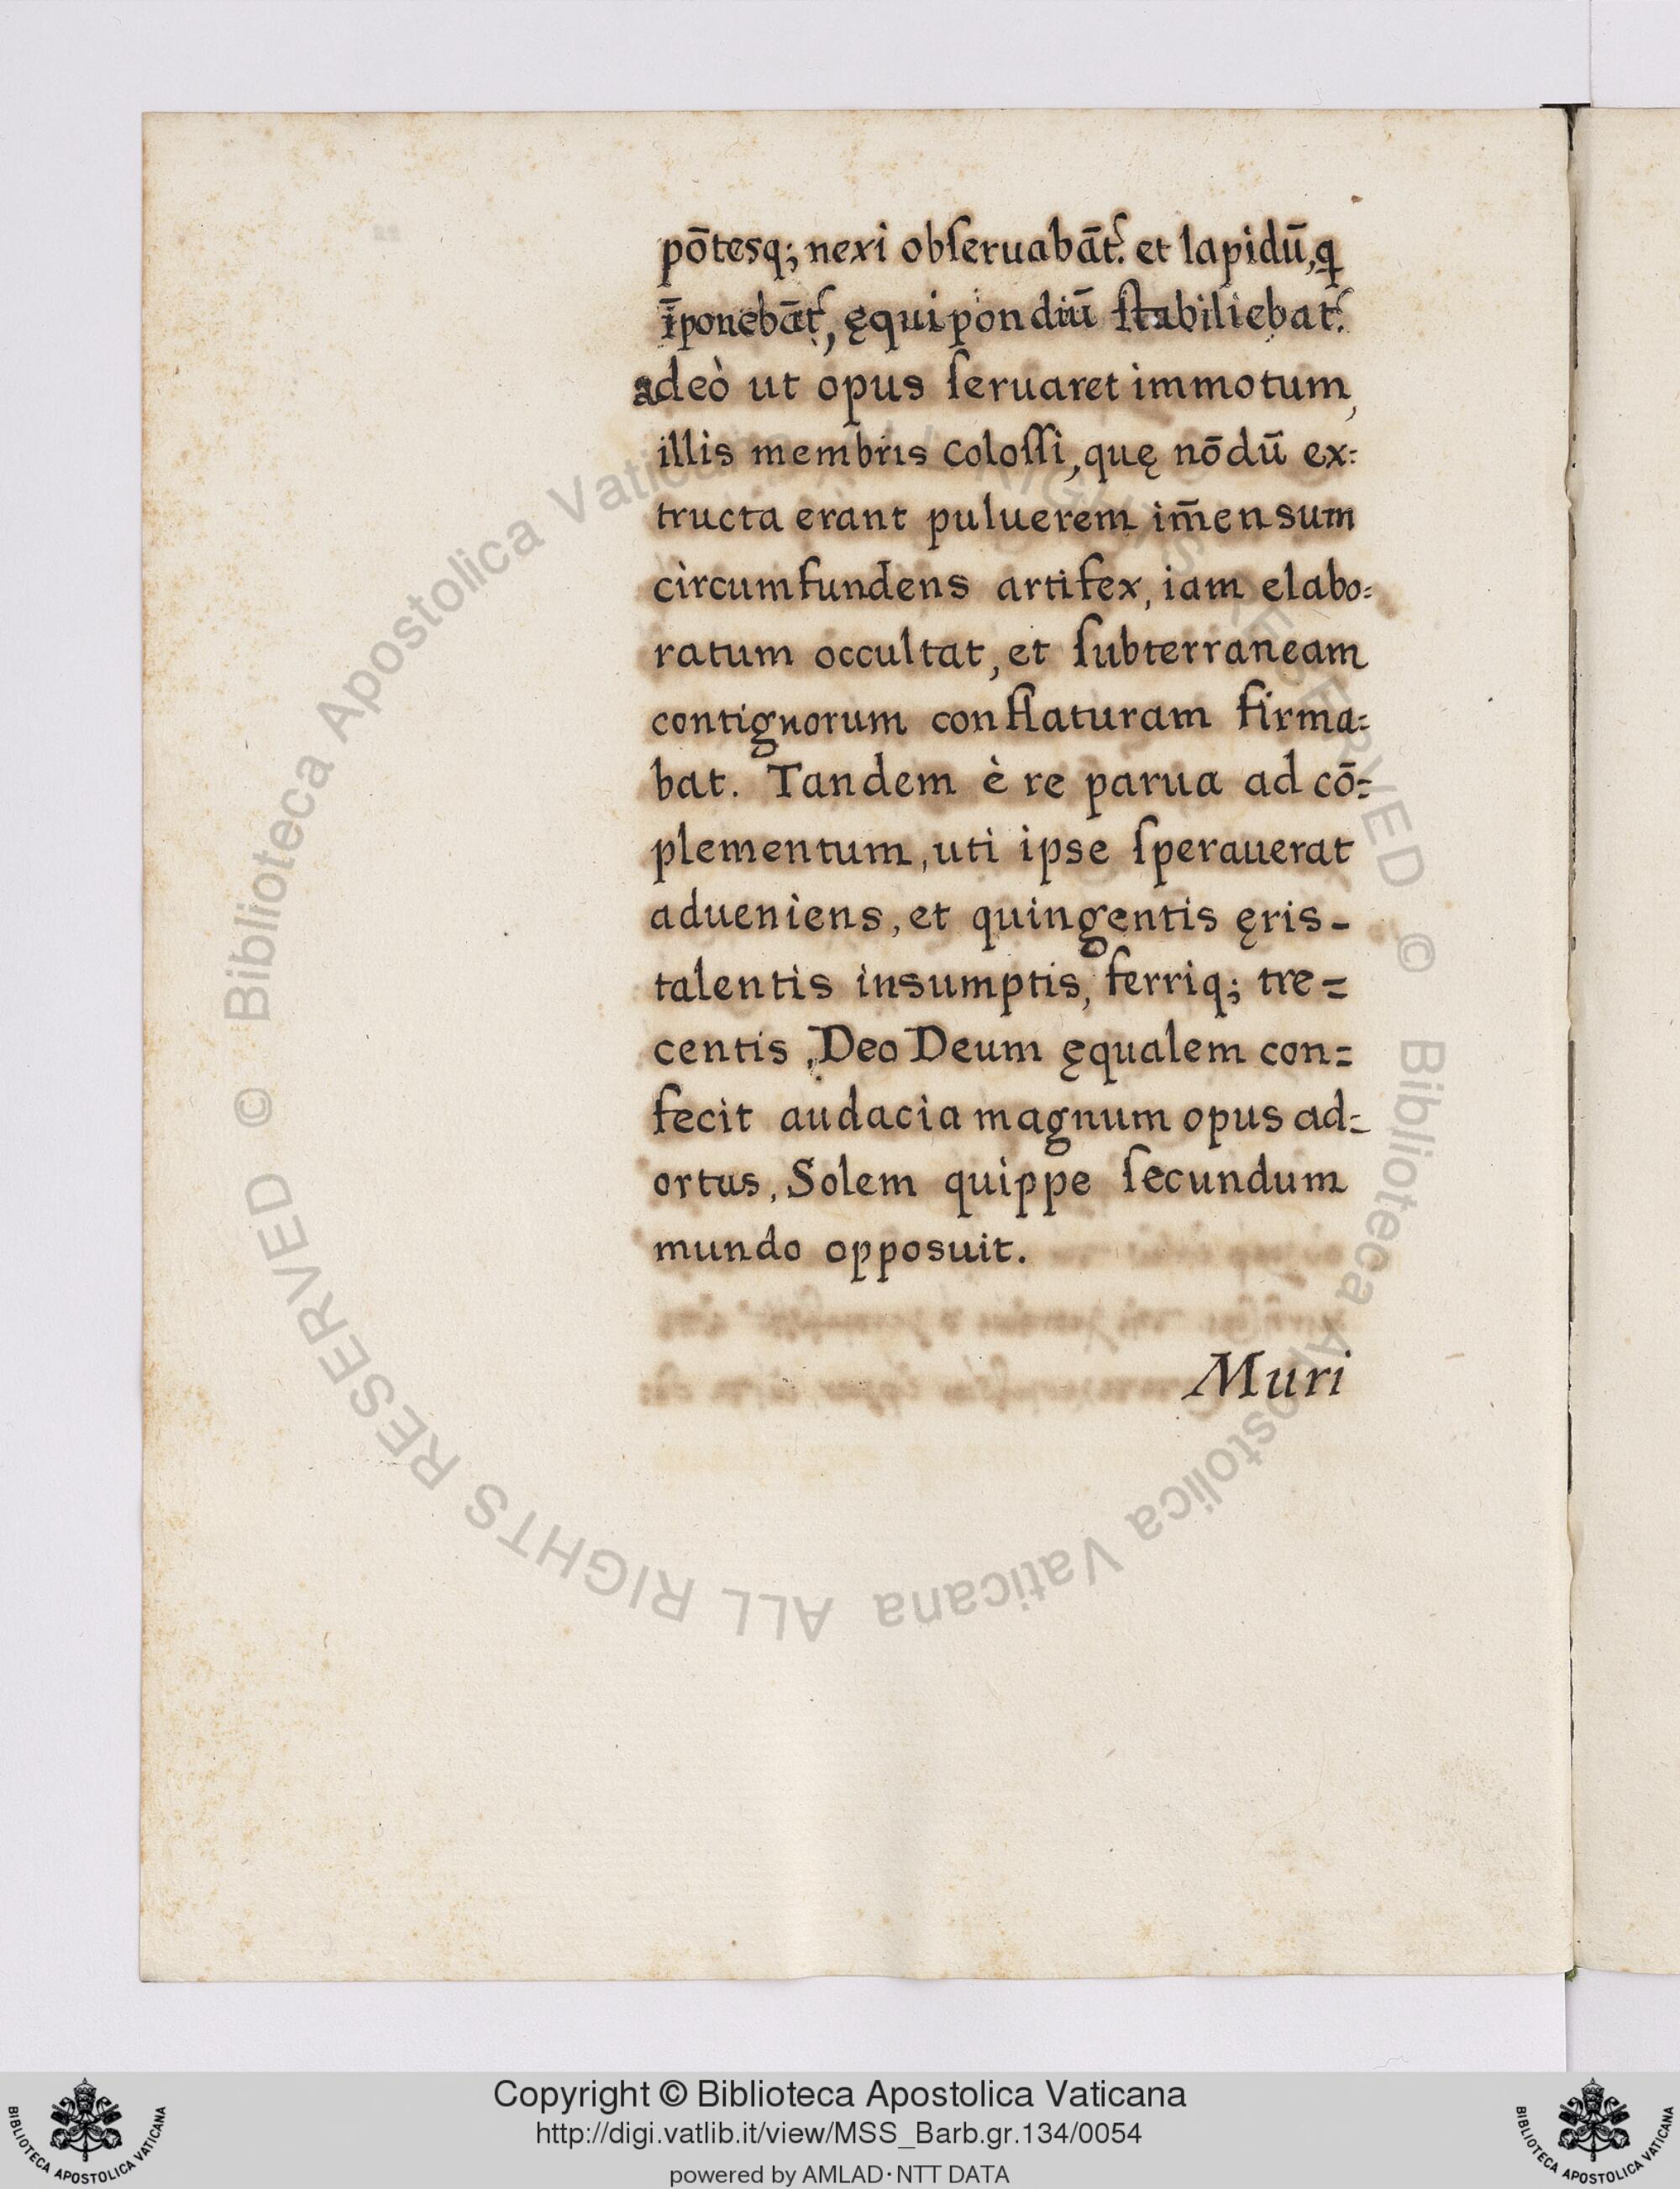 põtesq; nexi obſeruabāt᷑. et lapidū, ꝗ
īponebāt᷑, ęquipondiū ſtabiliebat᷑.
adeò ut opus ſeruaret immotum,
illis membris coloſſi, quę nōdū ex=
tructa erant puluerem im̄ensum
circumfundens artifex, iam elabo=
ratum occultat, et ſubterraneam
contignorum conflaturam firma=
bat. Tandem è re parua ad cō=
plementum, uti ipse ſperauerat
adueniens, et quingentis ęris-
talentis insumptis, ferriq; tre=
centis, Deo Deum ęqualem con=
fecit audacia magnum opus ad=
ortus, Solem quippe ſecundum
mundo opposuit.
Muri
© Biblioteca Apostolica Vaticana ALL RIGHTS RESERVED © Biblioteca Apostolica Vaticana ALL RIGHTS RESERVED
BIBLIOTECA APOSTOLICA VATICANA
Copyright © Biblioteca Apostolica Vaticana
http://digi.vatlib.it/view/MSS_Barb.gr.134/0054
powered by AMLAD·NTT DATA
BIBLIOTECA APOSTOLICA VATICANA